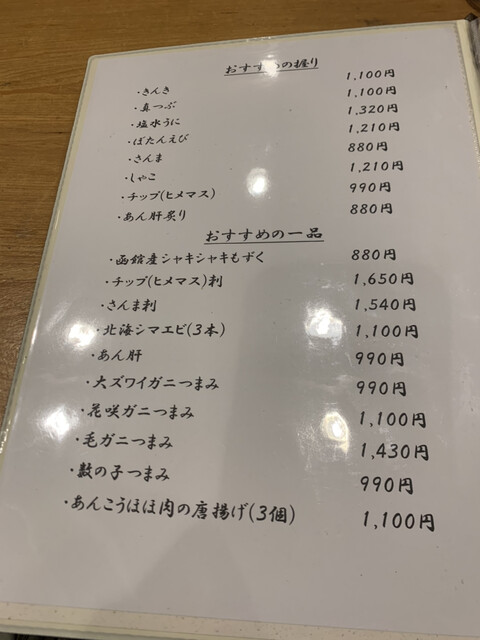 おすすめの握り
・きんき 1,100円
・真つぶ 1,100円
・塩水うに 1,320円
・ぼたんえび 1,210円
・さんま 880円
・しゃこ 1,210円
・チップ(ヒメマス) 990円
・あん肝炙り 880円
おすすめの一品
・函館産シャキシャキもずく 880円
・チップ(ヒメマス)刺 1,650円
・さんま刺 1,540円
・北海シマエビ(3本) 1,100円
・あん肝 990円
・大ズワイガニつまみ 990円
・花咲ガニつまみ 1,100円
・毛ガニつまみ 1,430円
・数の子つまみ 990円
・あんこうほほ肉の唐揚げ(3個) 1,100円